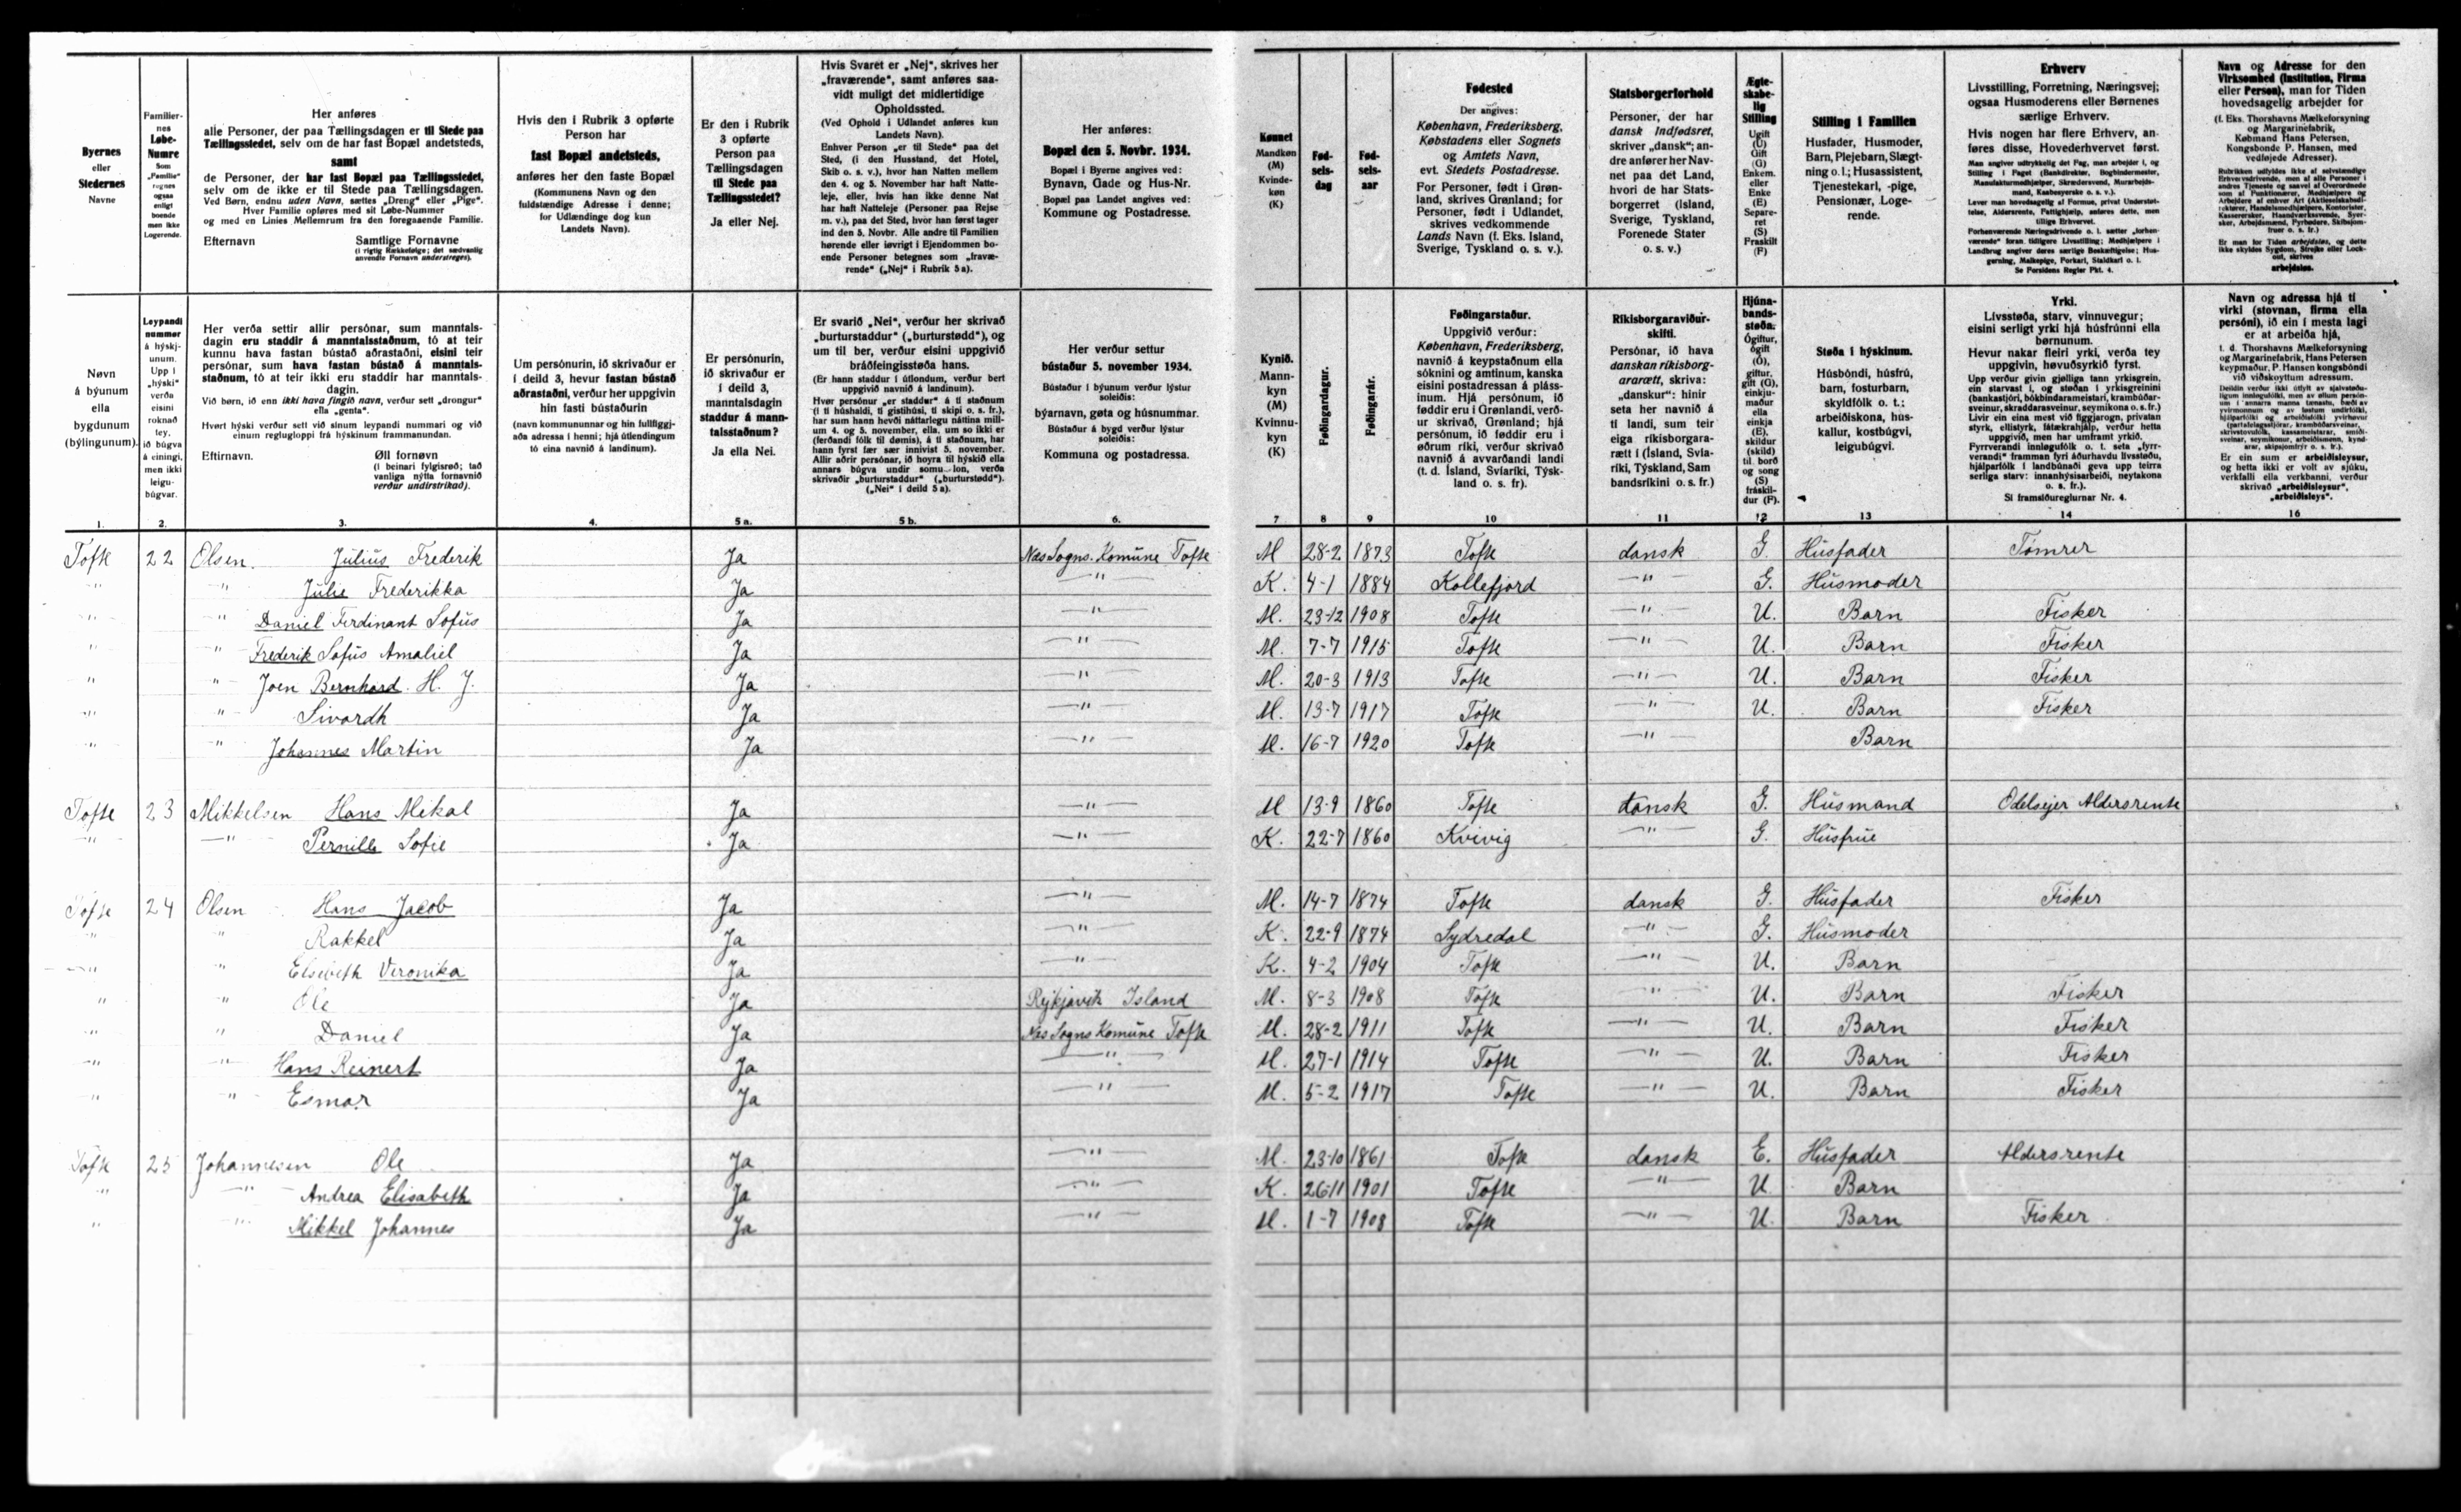 Byernes
eller
Stedernes
Navne
Familier-
nes
Løbe-
Numre
Som
„Familie"
regnes
ogsaa
enligt
boende
men ikke
Logerende.
Her anføres
alle Personer, der paa Tællingsdagen er til Stede paa
Tællingsstedet, selv om de har fast Bopæl andetsteds,
samt
de Personer, der har fast Bopæl paa Tællingsstedet,
selv om de ikke er til Stede paa Tællingsdagen.
Ved Børn, endnu uden Navn, sættes „Dreng" eller „Pige".
Hver Familie opføres med sit Løbe-Nummer
og med en Linies Mellemrum fra den foregaaende Familie.
Efternavn Samtlige Fornavne
(i rigtig Rækkefølge; det sædvanlig
anvendte Fornavn understreges).
Hvis den i Rubrik 3 opførte
Person har
fast Bopæl andetsteds,
anføres her den faste Bopæl
(Kommunens Navn og den
fuldstændige Adresse i denne;
for Udlændinge dog kun
Landets Navn).
Er den i Rubrik
3 opførte
Person paa
Tællingsdagen
til Stede paa
Tællingsstedet?
Ja eller Nej.
Hvis Svaret er „Nej", skrives her
„fraværende", samt anføres saa-
vidt muligt det midlertidige
Opholdssted.
(Ved Ophold i Udlandet anføres kun
Landets Navn).
Enhver Person „er til Stede" paa det
Sted, (i den Husstand, det Hotel,
Skib o. s. v.), hvor han Natten mellem
den 4. og 5. November har haft Natte-
leje, eller, hvis han ikke denne Nat
har haft Natteleje (Personer paa Rejse
m. v.), paa det Sted, hvor han først tager
ind den 5. Novbr. Alle andre til Familien
hørende eller iøvrigt i Ejendommen bo-
ende Personer betegnes som „fravæ-
rende" („Nej" i Rubrik 5 a).
Her anføres:
Bopæl den 5. Novbr. 1934.
Bopæl i Byerne angives ved:
Bynavn, Gade og Hus-Nr.
Bopæl paa Landet angives ved:
Kommune og Postadresse.
Kønnet
Mandkøn
(M)
Kvinde-
køn
(K)
Fød-
sels-
dag
Fød-
sels-
aar
Fødested
Der angives:
København, Frederiksberg,
Købstadens eller Sognets
og Amtets Navn,
evt. Stedets Postadresse.
For Personer, født i Grøn-
land, skrives Grønland; for
Personer, født i Udlandet,
skrives vedkommende
Lands Navn (f. Eks. Island,
Sverige, Tyskland o. s. v.).
Statsborgerforhold
Personer, der har
dansk Indfødsret,
skriver „dansk"; an-
dre anfører her Nav-
net paa det Land,
hvori de har Stats-
borgerret (Island,
Sverige, Tyskland,
Forenede Stater
o. s. v.)
Ægte-
skabe-
lig
Stilling
Ugift
(U)
Gift
(G)
Enkem.
eller
Enke
(E)
Separe-
ret
(S)
Fraskilt
(F)
Stilling i Familien
Husfader, Husmoder,
Barn, Plejebarn, Slægt-
ning o. l.; Husassistent,
Tjenestekarl, -pige,
Pensionær, Loge-
rende.
Erhverv
Livsstilling, Forretning, Næringsvej;
ogsaa Husmoderens eller Børnenes
særlige Erhverv.
Hvis nogen har flere Erhverv, an-
føres disse, Hovederhvervet først.
Man angiver udtrykkelig det Fag, man arbejder i, og
Stilling i Faget (Bankdirektør, Bogbindermester,
Manufakturmedhjælper, Skrædersvend, Murarbejds-
mand, Kaabesyerske o. s. v.).
Lever man hovedsagelig af Formue, privat Understøt-
telse, Aldersrente, Fattighjælp, anføres dette, men
tillige Erhvervet.
Forhenværende Næringsdrivende o. l. sætter „forhen-
værende" foran tidligere Livsstilling; Medhjælpere i
Landbrug angiver deres særlige Beskæftigelse; Hus-
gerning, Malkepige, Forkarl, Staldkarl o. l.
Se Forsidens Regler Pkt. 4.
Navn og Adresse for den
Virksomhed (Institution, Firma
eller Person), man for Tiden
hovedsagelig arbejder for
(f. Eks. Thorshavns Mælkeforsyning
og Margarinefabrik,
Købmand Hans Petersen,
Kongsbonde P. Hansen, med
vedføjede Adresser).
Er man for Tiden arbejdsløs, og dette
ikke skyldes Sygdom, Strejke eller Lock-
out, skrives
arbejdsløs.
Nøvn
á býunum
ella
bygdunum
(býlingunum).
Leypandi
nummer
á hýskj-
unum.
Upp í
„hýski"
verða
eisini
roknað
tey,
ið búgva
á einingi,
men ikki
leigu-
búgvar.
Her verða settir allir persónar, sum manntals-
dagin eru staddir á manntalsstaðnum, tó at teir
kunnu hava fastan bústað aðrastaðni, eisini teir
persónar, sum hava fastan bústað á manntals-
staðnum, tó at teir ikki eru staddir har manntals-
dagin.
Við børn, ið enn ikki hava fingið navn, verður sett „drongur"
ella „genta".
Hvørt hýski verður sett við sínum leypandi nummari og við
einum reglugloppi frá hýskinum frammanundan.
Eftirnavn. Øll fornøvn
(í beinari fylgisrøð; tað
vanliga nýtta fornavnið
verður undirstrikað).
Um persónurin, ið skrivaður er
í deild 3, hevur fastan bústað
aðrastaðni, verður her uppgivin
hin fasti bústaðurin
(navn kommununnar og hin fullfíggj-
aða adressa í henni; hjá útlendingum
tó eina navnið á landinum).
Er persónurin,
ið skrivaður er
í deild 3,
manntalsdagin
staddur á mann-
talsstaðnum?
Ja ella Nei.
Er svarið „Nei", verður her skrivað
„burturstaddur" („burturstødd"), og
um til ber, verður eisini uppgivið
bráðfeingisstøða hans.
(Er hann staddur í útlondum, verður bert
uppgivið navnið á landinum).
Hvør persónur „er staddur" á tí staðnum
(í tí húshaldi, tí gistihúsi, tí skipi o. s. fr.),
har sum hann hevði náttarlegu náttina mill-
um 4. og 5. november, ella, um so ikki er
(ferðandi fólk til dømis), á tí staðnum, har
hann fyrst fær sær innivist 5. november.
Allir aðrir persónar, ið hoyra til hýskið ella
annars búgva undir somu lon, verða
skrivaðir „burturstaddur" („burturstødd").
(„Nei" í deild 5 a).
Her verður settur
bústaður 5. november 1934.
Bústaður í býunum verður lýstur
soleiðis:
býarnavn, gøta og húsnummar.
Bústaður á bygd verður lýstur
soleiðis:
Kommuna og postadressa.
Kynið.
Mann-
kyn
(M)
Kvinnu-
kyn
(K)
Føðingardagur.
Føðingarár.
Føðingarstaður.
Uppgivið verður:
København, Frederiksberg,
navnið á keypstaðnum ella
sóknini og amtinum, kanska
eisini postadressan á pláss-
inum. Hjá persónum, ið
føddir eru í Grønlandi, verð-
ur skrivað, Grønland; hjá
persónum, ið føddir eru í
øðrum ríki, verður skrivað
navnið á avvarðandi landi
(t. d. Ísland, Svíaríki, Týsk-
land o. s. fr).
Ríkisborgaraviður-
skifti.
Persónar, ið hava
danskan ríkisborg-
ararætt, skriva:
„danskur": hinir
seta her navnið á
tí landi, sum teir
eiga ríkisborgara-
rætt í (Ísland, Svía-
ríki, Týskland, Sam
bandsríkini o. s. fr.)
Hjúna-
bands-
støða.
Ógiftur,
ógift
(Ó),
giftur,
gift (G),
einkju-
maður
ella
einkja
(E),
skildur
(skild)
til. borð
og song
(S)
fráskil-
dur (F).
Støða í hýskinum.
Húsbóndi, húsfrú,
barn, fosturbarn,
skyldfólk o. t.;
arbeiðiskona, hús-
kallur, kostbúgvi,
leigubúgvi.
Yrki.
Lívsstøða, starv, vinnuvegur;
eisini serligt yrki hjá húsfrúnni ella
børnunum.
Hevur nakar fleiri yrki, verða tey
uppgivin, høvuðsyrkið fyrst.
Upp verður givin gjølliga tann yrkisgrein,
ein starvast í, og støðan í yrkisgreinini
(bankastjóri, bókbindarameistari, krambúðar-
sveinur, skraddarasveinur, seymikona o. s. fr.)
Livir ein eina mest við fíggjarogn, privatan
styrk, ellistyrk, fátækrahjálp, verður hetta
uppgivið, men har umframt yrkið.
Fyrrverandi innløgufólk o. t. seta „fyrr-
verandi" framman fyri áðurhavdu lívsstøðu,
hjálparfólk í landbúnaði geva upp teirra
serliga starv: innanhýsisarbeiði, neytakona
o. s. fr.).
Sí framsíðureglurnar Nr. 4.
Navn og adressa hjá tí
virki (stovnan, firma ella
persóni), ið ein í mesta lagi
er at arbeiða hjá,
t. d. Thorshavns Mælkeforsyning
og Margarinefabrik, Hans Petersen
keypmaður, P. Hansen kongsbóndi
við viðskoyttum adressum.
Er ein sum er arbeiðisleysur,
og hetta ikki er volt av sjúku,
verkfalli ella verkbanni, verður
skrivað „arbeiðisleysur",
„arbeiðisleys".
1. 2. 3. 4. 5 a. 5 b. 6. 7 8 9 10 11 12 13 14 16
Tofte 22 Olsen. Julius Frederik Ja Næs Sogns. Komüne Tofte M 28-2 1873 Tofte dansk G. Husfader Tømrer
" " Julie Frederikka Ja " K. 4-1 1884 Kollefjord " G. Husmoder
" " Daniel Ferdinant Sofus Ja " M. 23-12 1908 Tofte " U. Barn Fisker
" " Frederik Sofus Amaliel Ja " M. 7-7 1915 Tofte " U. Barn Fisker
" " Joen Bernhard. H. J. Ja " M. 20-3 1913 Tofte " U. Barn Fisker
" " Sivardh Ja " M. 13-7 1917 Tofte " U. Barn Fisker
" " Johannes Martin Ja " M. 16-7 1920 Tofte " Barn
Tofte 23 Mikkelsen Hans Mikal Ja " M 13-9 1860 Tofte dansk G. Husmand Odelsejer Aldersrente
" " Pernille Sofie Ja " K. 22-7 1860 Kvivig " G. Husfrue
Tofte 24 Olsen Hans Jacob Ja " M. 14-7 1874 Tofte dansk G. Husfader Fisker
" " Rakkel Ja " K. 22-9 1874 Sydredal " G. Husmoder
" " Elsebeth Veronika Ja " K. 4-2 1904 Tofte " U. Barn
" " Ole Ja Rejkjavik Island M. 8-3 1908 Tofte " U. Barn Fisker
" " Daniel Ja Næs Sogns Komüne Tofte M. 28-2 1911 Tofte " U. Barn Fisker
" " Hans Reinert Ja " M. 27-1 1914 Tofte " U. Barn Fisker
" " Esmar Ja " M. 5-2 1917 Tofte " U. Barn Fisker
Tofte 25 Johannesen Ole Ja " M. 23-10 1861 Tofte dansk E. Husfader Aldersrente
" " Andrea Elisabeth Ja " K. 26-11 1901 Tofte " U. Barn
" " Mikkel Johannes Ja " M. 1-7 1908 Tofte " U. Barn Fisker